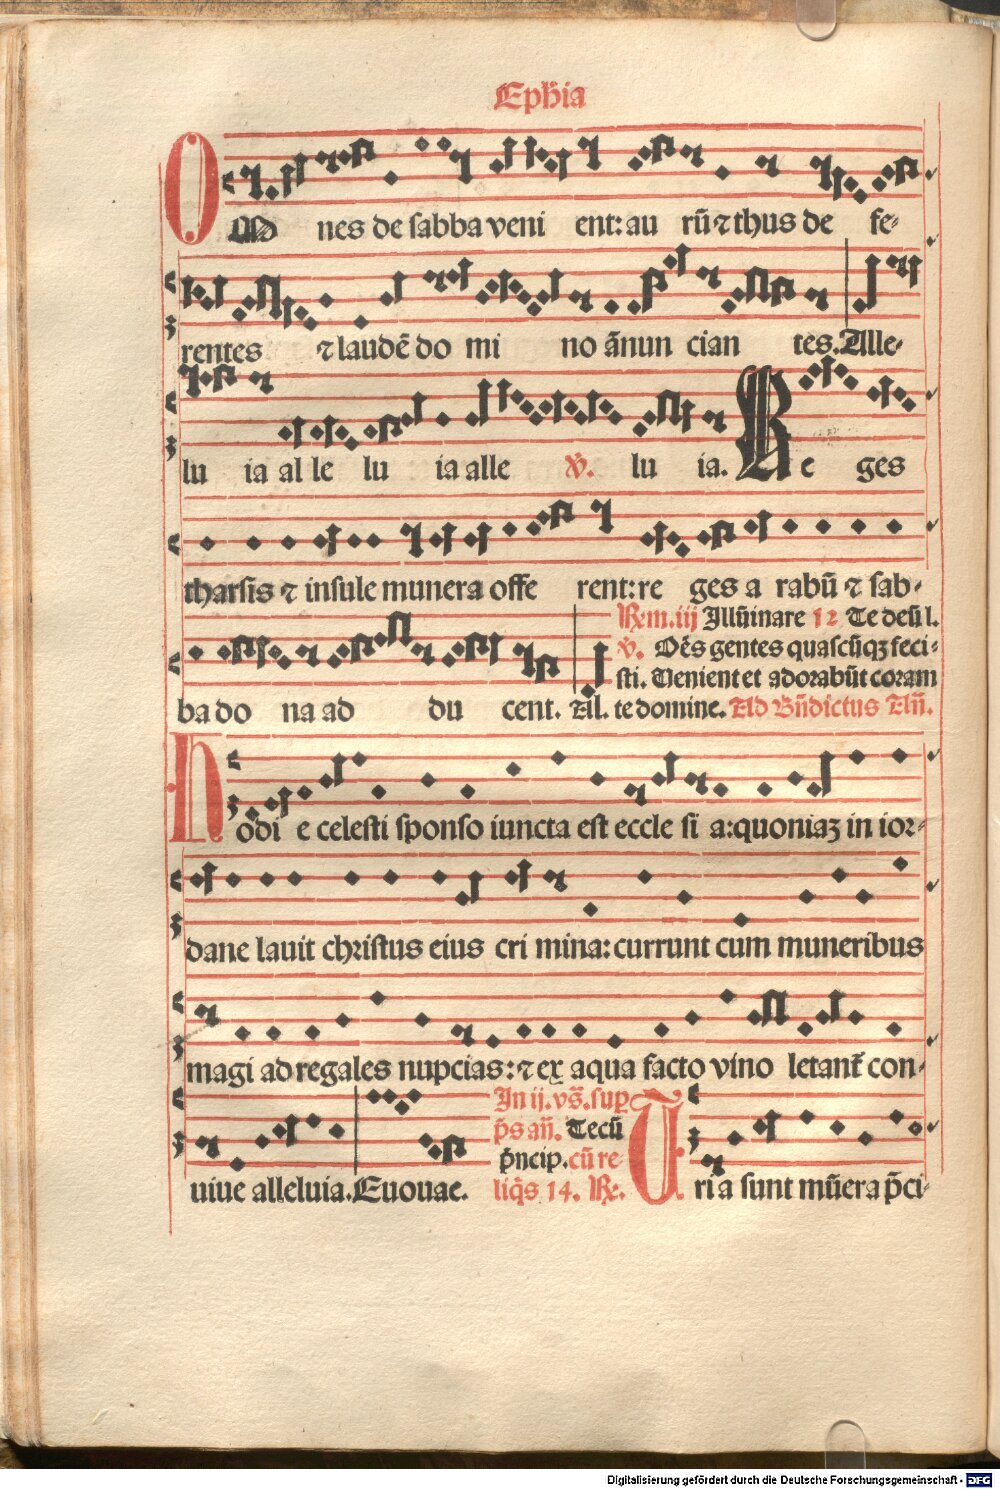 Ephia
OMnes de sabba veni ent: au rū ⁊ thus de fe-
rentes ⁊ laudē do mi no ānun cian tes. Alle-
lu ia al le lu ia alle v̄. lu ia. Re ges
tharsis ⁊ insule munera offe rent: re ges a rabū ⁊ sab-
R̄m. iij Illūinare 12 Te deū l.
v̄. Oēs gentes quascūqꝫ feci-
sti. Venient et adorabūt coram
ba do na ad du cent. All. te domine. Ad Bn̄dictus An̄.
Hodi e celesti sponso iuncta est eccle si a: quoniaꝫ in ior-
dane lauit christus eius cri mina: currunt cum muneribus
magi ad regales nupcias: ⁊ ex aqua facto vino letant᷑ con-
In ij. vs̄. sup
p̄s an̄. Tecū
p̄ncip. cū re-
uiue alleluia. Euouae. liq̄s 14. R̄. Tria sunt mūera p̄ci-
Digitalisierung gefördert durch die Deutsche Forschungsgemeinschaft - DFG